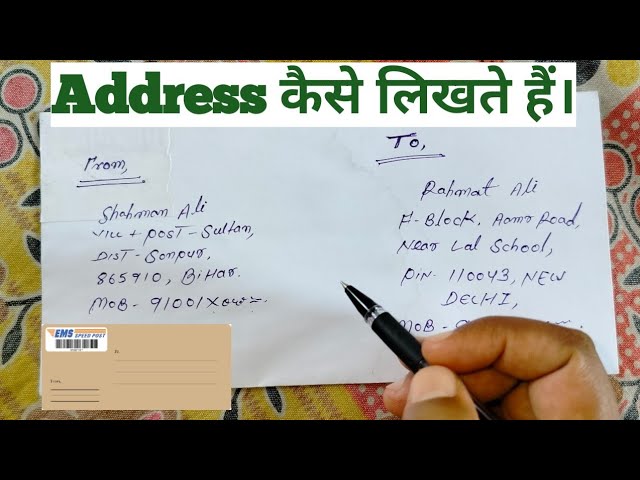 Address कैसे लिखते हैं।
From,
Shahman Ali
Vill + POST - Sultan,
DIST - Sonpur,
865910, BiHar.
MOB - 91001X
To,
Rahmat Ali
F-Block, Road,
Near Lal School,
PiN - 110043, NEW
DELHI,
MOB - 9
EMS
SPEED POST
To,
From,